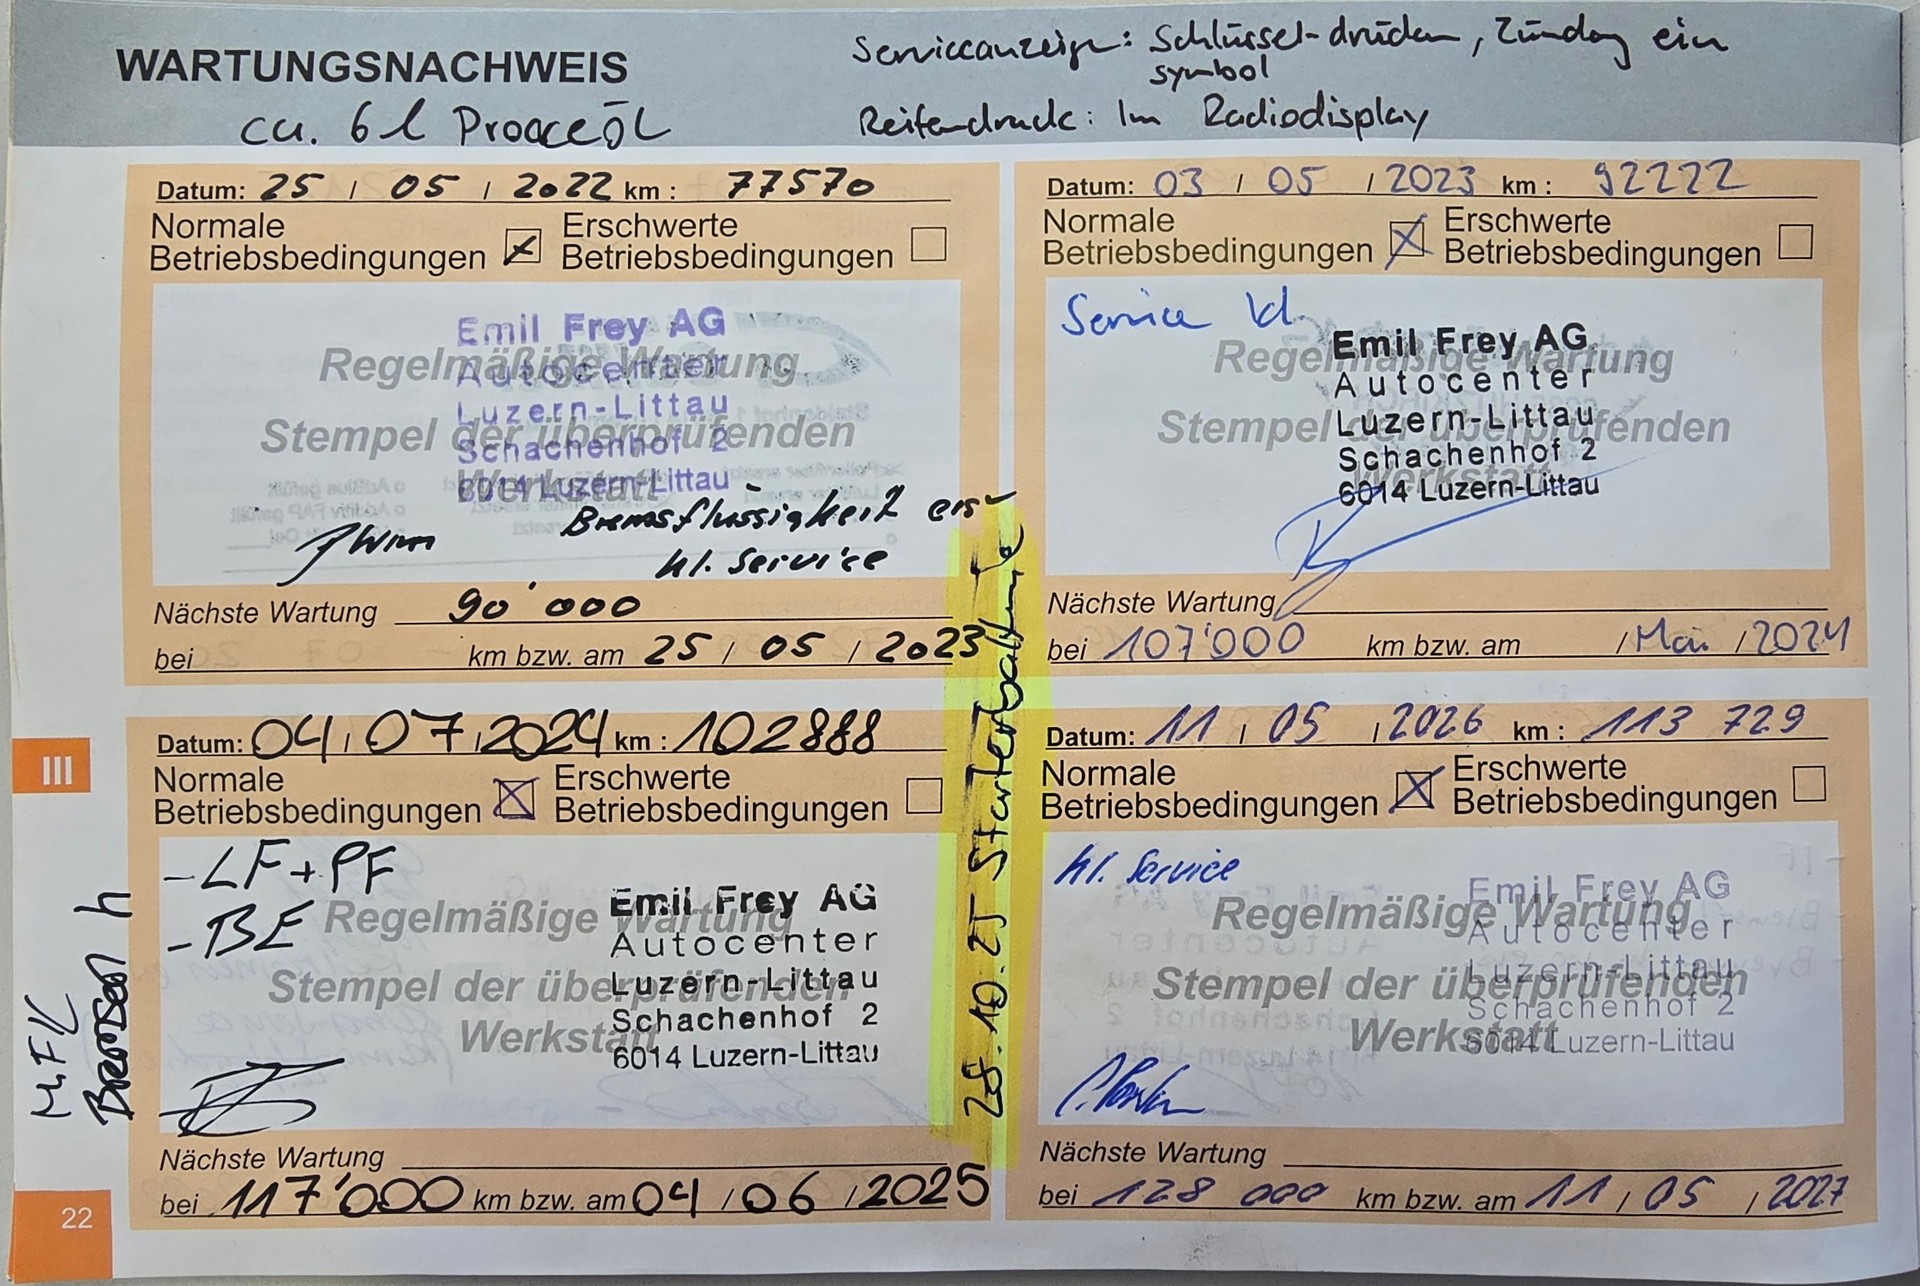 WARTUNGSNACHWEIS
ca. 6 l Proaceöl
Serviceanzeige: Schlüssel-drücken, Zündng ein
symbol
Reifendruck: Im Radiodisplay
Datum: 25 / 05 / 2022 km : 77570
Normale
Betriebsbedingungen
Erschwerte
Betriebsbedingungen
Regelmäßige Wartung
Stempel der überprüfenden
Werkstatt
Emil Frey AG
Autocenter
Luzern-Littau
Schachenhof 2
6014 Luzern-Littau
Bremsflüssigkeit ers
kl. Service
Nächste Wartung 90'000
bei km bzw. am 25 / 05 / 2023
Datum: 03 / 05 / 2023 km : 92222
Normale
Betriebsbedingungen
Erschwerte
Betriebsbedingungen
Service kl.
Regelmäßige Wartung
Stempel der überprüfenden
Werkstatt
Emil Frey AG
Autocenter
Luzern-Littau
Schachenhof 2
6014 Luzern-Littau
Nächste Wartung
bei 107'000 km bzw. am / Mai / 2024
28.10.25 Starterbatterie
III
Datum: 04 / 07 / 2024 km : 102888
Normale
Betriebsbedingungen
Erschwerte
Betriebsbedingungen
- LF + PF
- BE
Regelmäßige Wartung
Stempel der überprüfenden
Werkstatt
Emil Frey AG
Autocenter
Luzern-Littau
Schachenhof 2
6014 Luzern-Littau
Nächste Wartung
bei 117'000 km bzw. am 04 / 06 / 2025
M.F.K
Bremsen h
Datum: 11 / 05 / 2026 km : 113 729
Normale
Betriebsbedingungen
Erschwerte
Betriebsbedingungen
kl. Service
Regelmäßige Wartung
Stempel der überprüfenden
Werkstatt
Emil Frey AG
Autocenter
Luzern-Littau
Schachenhof 2
6014 Luzern-Littau
Nächste Wartung
bei 128 000 km bzw. am 11 / 05 / 2027
22